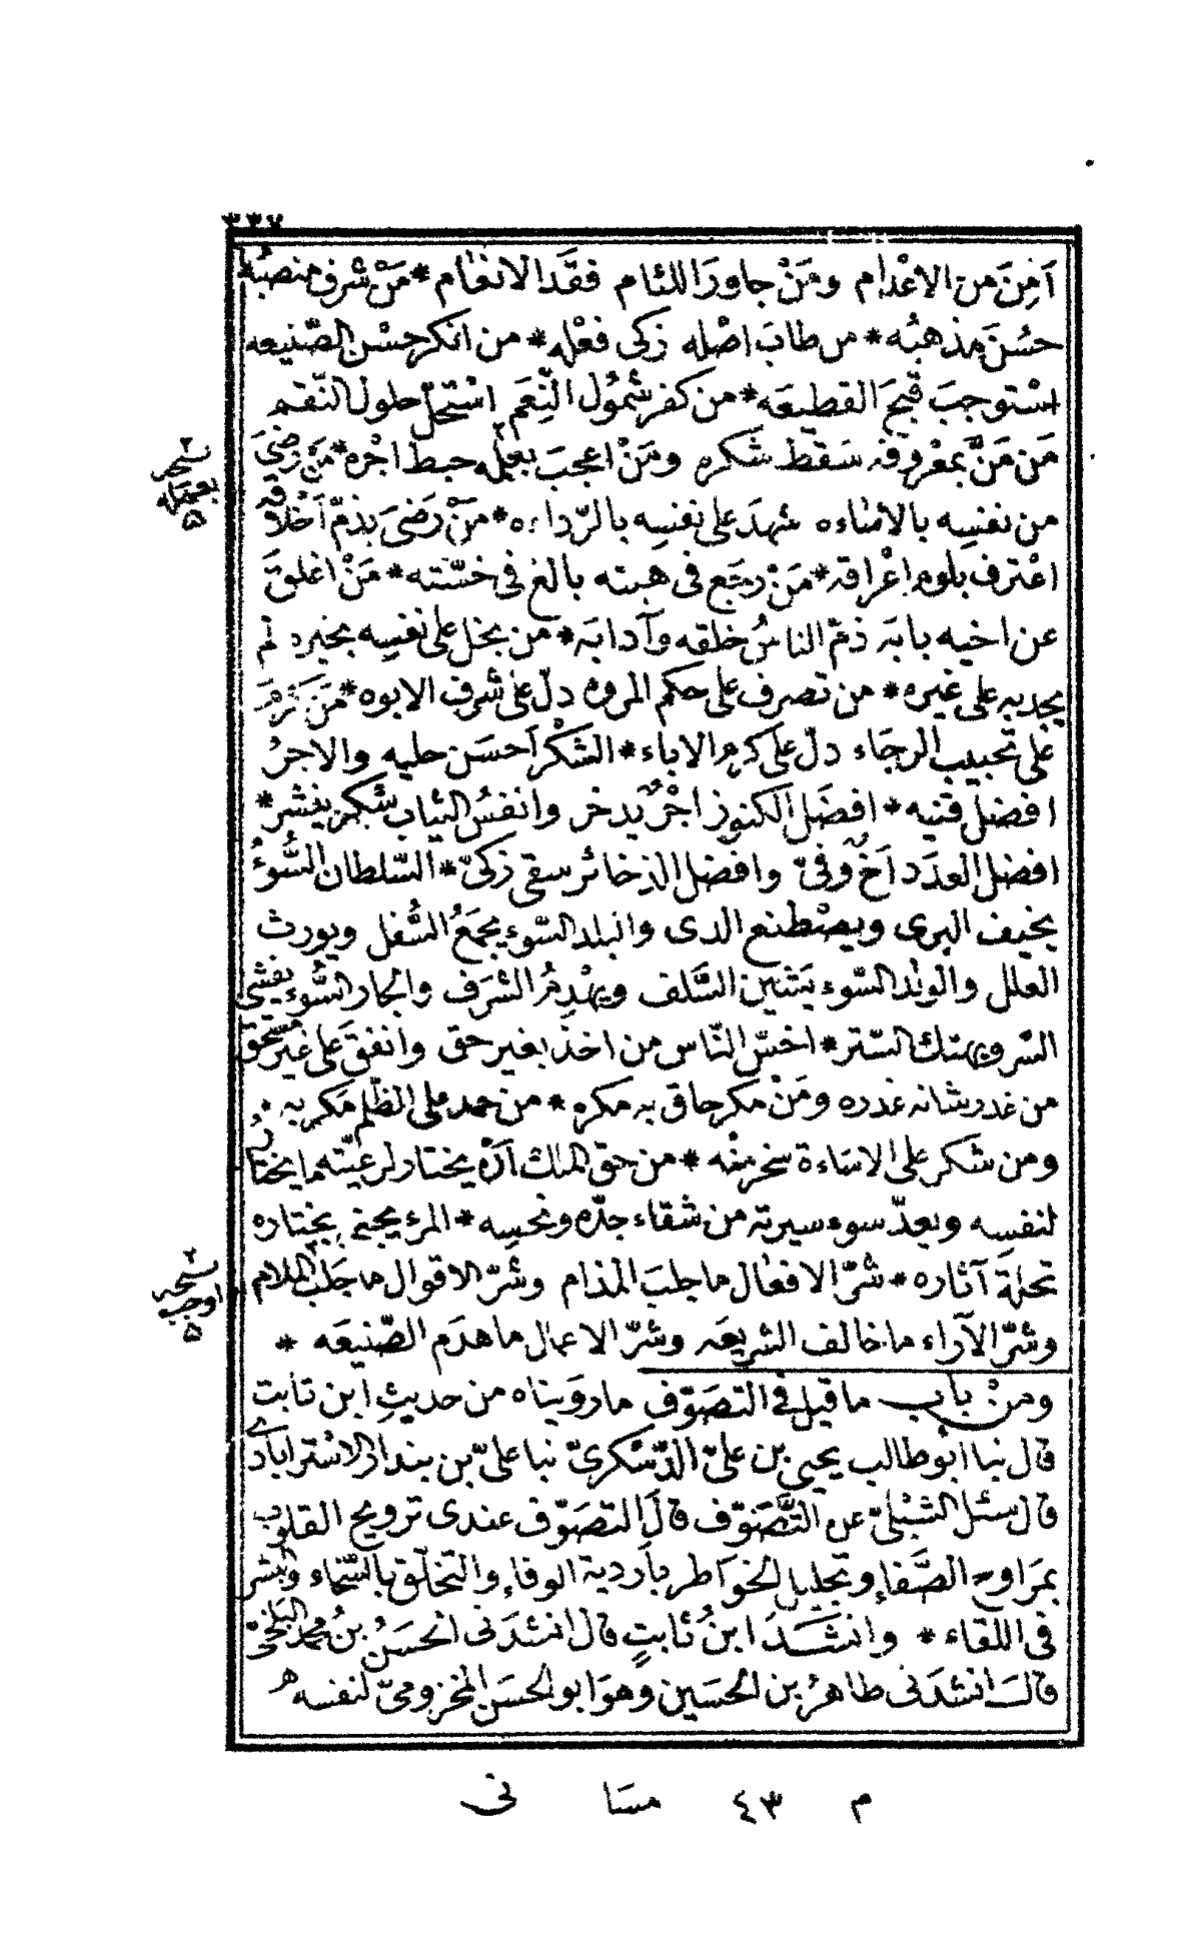 ٣٣٧
آمِنَ من الاعْدام ومَنْ جاورَ اللئام فقَد الانعام * مَنْ شرف منصبُه *
حسُنَ مذهبُه * من طابَ اصْله زكى فعْله * من انكر حسْن الصّنيعه
اسْتوجبَ قبحَ القطيعَه * من كفر شمُول النِّعَم اسْتحلّ حلول النّقم
مَن مَنَّ بمعْروفه سَقط شكره ومَنْ اعجبَ بعمله حبط اجْره * مَنْ رضىَ
من نفسِه بالاساءه شهدَ على نفسِه بالرّداءه * مَنْ رَضىَ بذمّ أخْلاقه
اعْترف بلوم اعْراقه * مَنْ رجَع فى هبته بالغ فى خسّته * مَنْ اغلقَ
عن اخيه بابَه ذمّ الناسُ خلقه وآدابَه * من بخل على نفسِه بخيره لم
يجد به على غيره * من تصرف على حكم المروه دلّ على شرف الابوه * مَن
على تحبيب الرجَاء دلّ على كرم الاباء * الشكْر أحسَن حليه والاجرُ
افضل قنيه * افضَل الكنوز اجْرٌ يدخر وانفسُ الثياب شكر ينشر *
افضل العدَد أخٌ وفىّ وافضل الذخائر سقى زكىّ * السّلطان السُّوءُ
يخيف البرى ويصْطنع الدى والبلد السّوء يجمَعُ السُّفل ويورث
العلل والولد السّوء يَشين السَّلف ويهْدِمُ الشرَف والجار السُّوء يفشى
السّر ويهتك السّتر * اخسّ النّاس من اخذ بغير حق وانفقَ على غير مستحق
من غدر شانه غدره ومَنْ مكر حاق به مكره * من حمد على الظّلم مَكر به
ومن شكر على الاسَاءة سخر منْه * من حقّ الملك أنْ يختار لرعيّته ما يختارُ
لنفسِه ويعدّ سوء سيرته من شقاء جدّه ونحسِه * المرء يجنى بختاره
تحلة آثاره * شرّ الافعال ما جلبَ المذام وشرّ الاقوال ما جَلبَ الملام
وشرّ الآراء ما خالف الشريعَه وشرّ الاعمال ما هدَم الصّنيعَه *
ومنْ باب ما قيل فى التصَوّف ما روَيناه من حديثِ ابن ثابت
قال نبا ابُو طالب يحيى بن علىّ الدّسْكرىّ نبا علىّ بن بندار الاسْتراباذى
قال سئل الشبْلىّ عن التَّصَوّف قالَ التصَوّف عندى ترويح القلوب
بمَراوح الصَّفاء وتجليل الخوَاطر بأردية الوفاء والتخلّق بالسّخاء والبشر
فى اللقاء * وانشَدَ ابنُ ثابتٍ قال انشدَنى الحسَنُ بنُ محمد البَلخىّ
قالَ انشدَنى طاهرُ بن الحسَين وهوَ ابو الحسَن المخزومىّ لنفسه
نسخه
بعمله
نسخه
اوجب
م ٤٣ مسَا نى